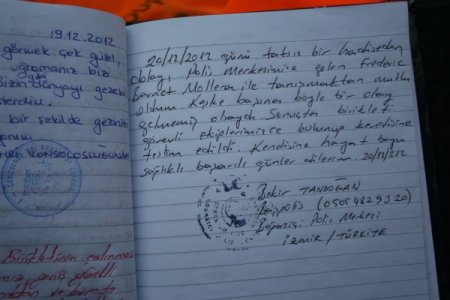 19.12.2012
görmek çok güzel,
uğramanız bizi
Bizin dünyayı gezebi
bir şekilde gezinize
20/12/2012 günü tatsız bir hadiseden
dolayı, Polis Merkezimize gelen Frederic
Bernet Mollera ile tanışmaktan mutlu
oldum. Keşke başına böyle bir olay
gelmemiş olsaydı. Sonuçta bisikleti
görevli ekiplerimizce bulunup kendisine
teslim edildi. Kendisine hayat boyu
sağlıklı başarılı günler dilerim. 20/12/2012
Bekir TANDOĞAN
Başpolis (0505 4329320)
Polis Merkezi
İZMİR / TÜRKİYE
Bisikletinin çalınması
ve burada